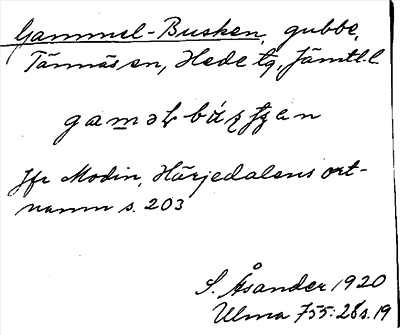 Gammel-Busken, gubbe,
Tännäs en, Hede tg, Jämtl. l
gaməḷ-bu
Jfr Modin, Härjedalens ort-
namn s. 203
S. Åsander 1920
Ulma 755:28 s. 19